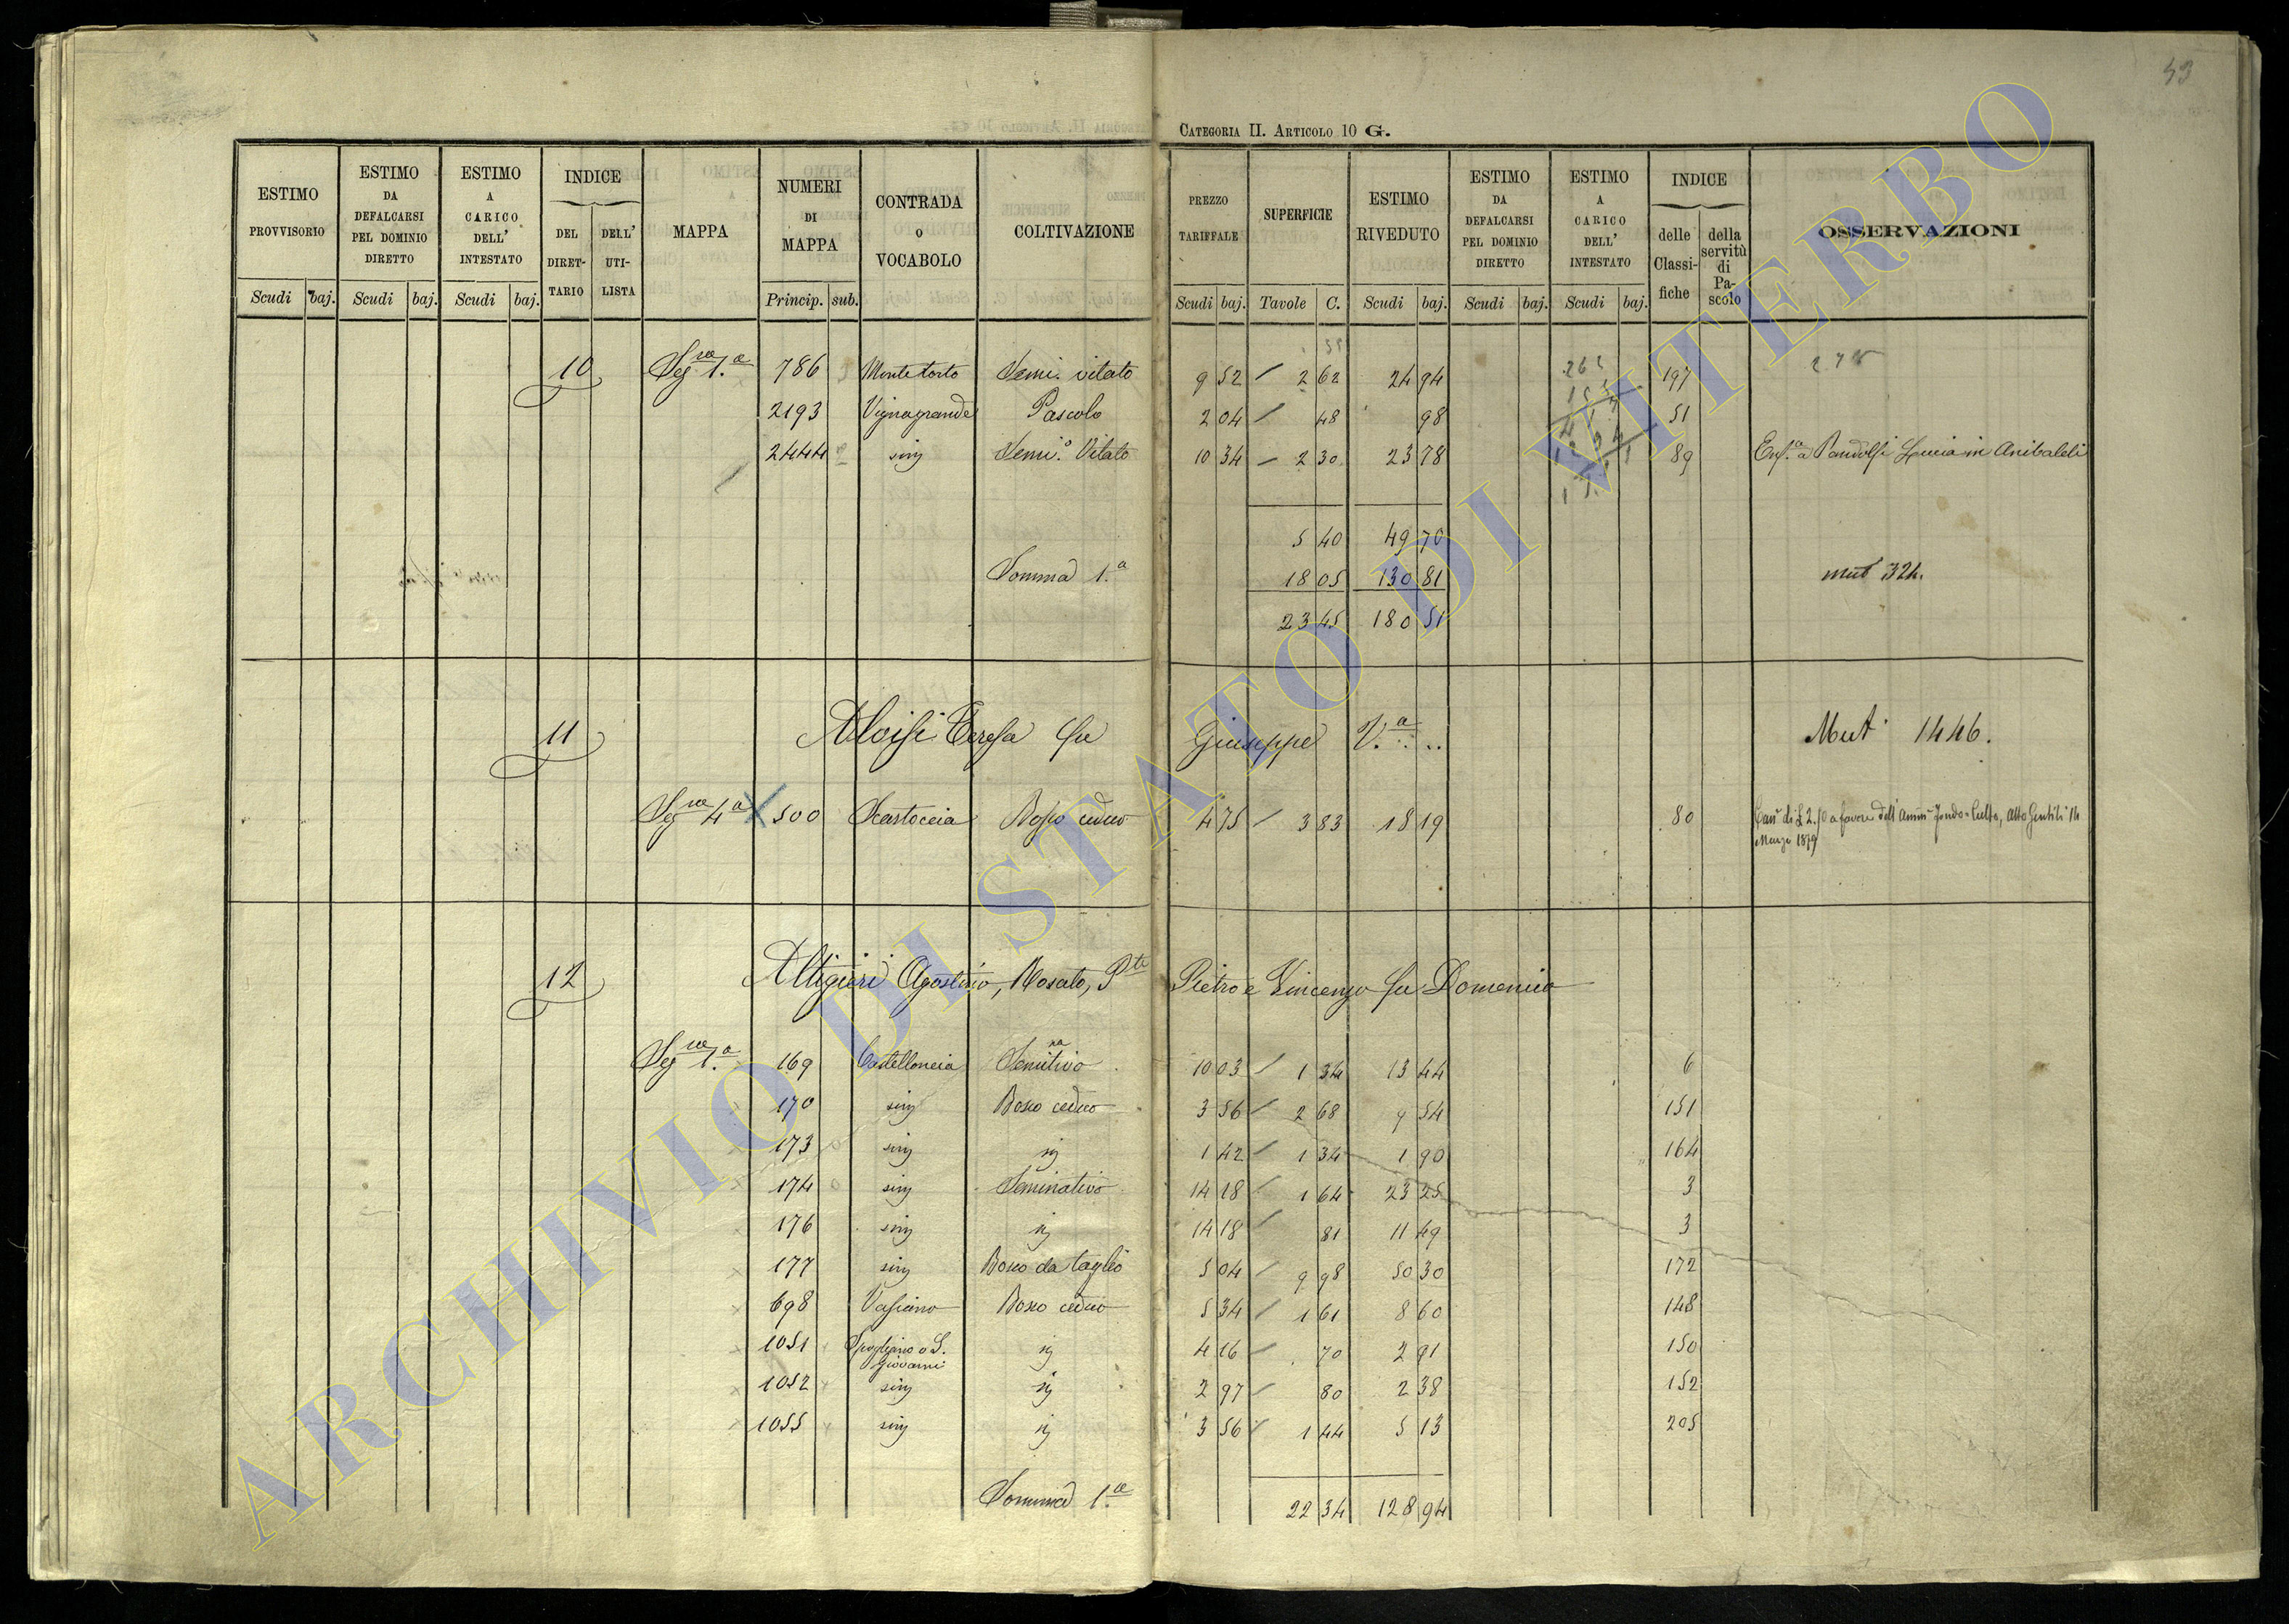 53
CATEGORIA II. ARTICOLO 10 G.
ESTIMO PROVVISORIO
ESTIMO DA DEFALCARSI PEL DOMINIO DIRETTO
ESTIMO A CARICO DELL' INTESTATO
INDICE
DEL DIRET-TARIO
DELL' UTI-LISTA
MAPPA
NUMERI DI MAPPA
CONTRADA o VOCABOLO
COLTIVAZIONE
PREZZO TARIFFALE
SUPERFICIE
ESTIMO RIVEDUTO
ESTIMO DA DEFALCARSI PEL DOMINIO DIRETTO
ESTIMO A CARICO DELL' INTESTATO
INDICE
delle Classi-fiche
della servitù di Pa-scolo
OSSERVAZIONI
Scudi baj. Scudi baj. Scudi baj. Princip. sub. Scudi baj. Tavole C. Scudi baj. Scudi baj. Scudi baj.
10 Seg.ne 1.a 786 Montetorto Semi. vitato 9 52 / 2 62 24 94 197
2193 Vignagrande Pascolo 2 04 / 48 98 51
2444 sim Semi.o Vitato 10 34 - 2 30 23 78 89 Enf.a a Pandolfi Lucia in Anibaldi
5 40 49 70
Somma 1.a 18 05 130 81 mut 324.
23 45 180 51
11 Aloisi Teresa fu Giuseppe V.a ... Mut 1446.
Seg.ne 4a X 500 Scastoccia Bosco ceduo 4 75 / 3 83 18 19 80 Can di £ 2.50 a favore dell'Amm Fondo=Culto, Atto Gentili 14
Marzo 1879
12 Altigieri Agostino, Rosato, P.te Pietro e Vincenzo fu Domenico
Seg.ne 1.a 169 Castelloncia Seminativo 10 03 / 1 34 13 44 6
170 sim Bosco ceduo 3 56 / 2 68 9 54 151
173 sim sij 1 42 / 1 34 1 90 164
174 sim Seminativo 14 18 / 1 64 23 25 3
176 sim sij 14 18 / 81 11 49 3
177 sim Bosco da taglio 5 04 / 9 98 50 30 172
698 Vasiano Bosco ceduo 5 34 / 1 61 8 60 148
1051 Spogliano o S. Giovanni sij 4 16 / 70 2 91 150
1052 sim sij 2 97 / 80 2 38 152
1055 sim sij 3 56 / 1 44 5 13 205
Somma 1.a 22 34 128 94
ARCHIVIO DI STATO DI VITERBO